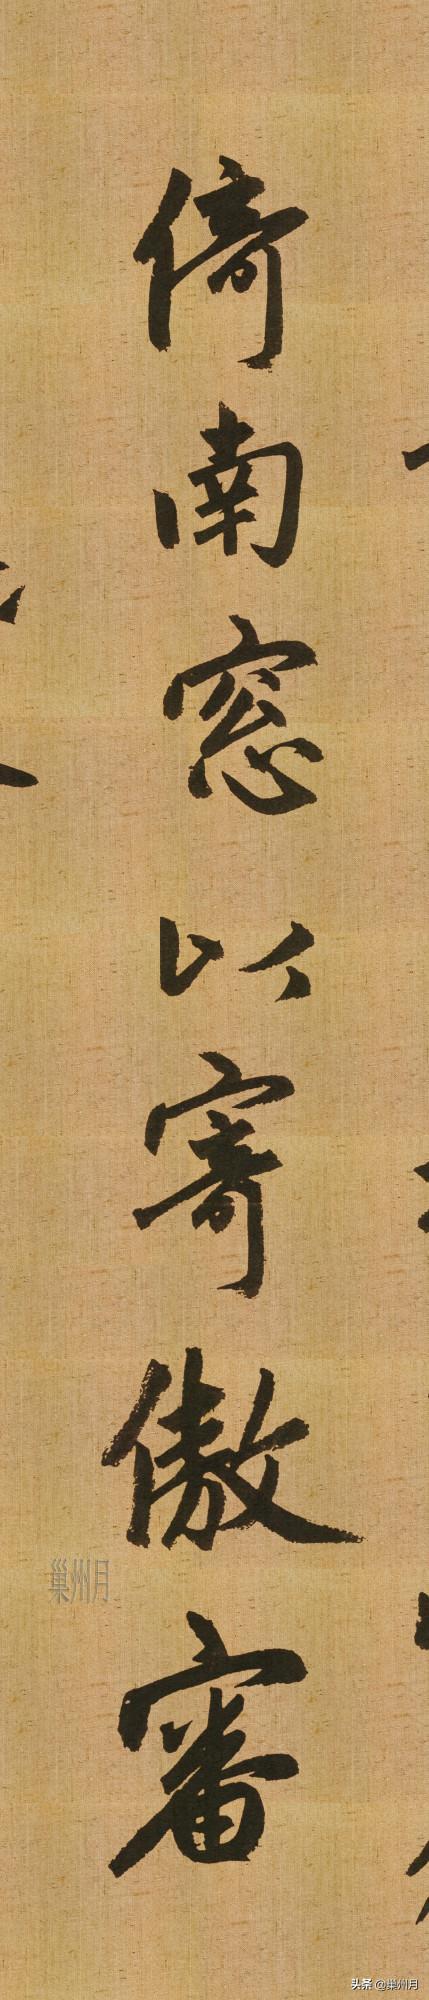 倚南窓以寄傲審
巢州月
头条 @巢州月